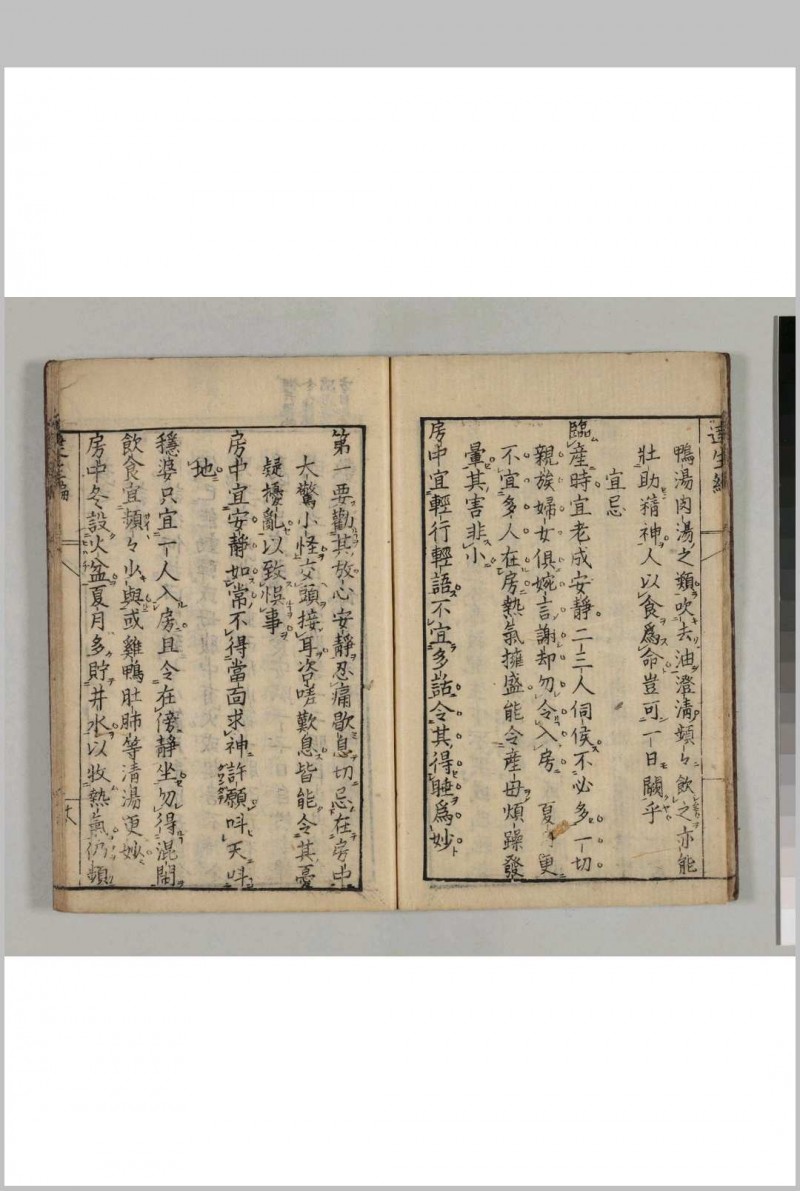 達生編
鴨湯肉湯之類吹去油澄清頻々飲之亦能
壯助精神人以食爲命豈可一日闕乎
宜忌
臨産時宜老成安靜二三人伺候不必多一切
親族婦女俱婉言謝却勿令入房 夏月更
不宜多人在房熱氣擁盛能令産母煩躁發
暈其害非小
房中宜輕行輕語不宜多話令其得睡爲妙
第一要勸其放心安靜忍痛歇息切忌在房中
大驚小怪交頭接耳咨嗟歎息皆能令其憂
疑擾亂以致悞事
房中宜安靜如常不得當面求神許願呌天呌
地
穩婆只宜一人入房且令在傍靜坐勿得混鬧
飲食宜頻々少與或雞鴨肚肺等清湯更妙
房中冬設火盆夏月多貯井水以收熱氣仍頻